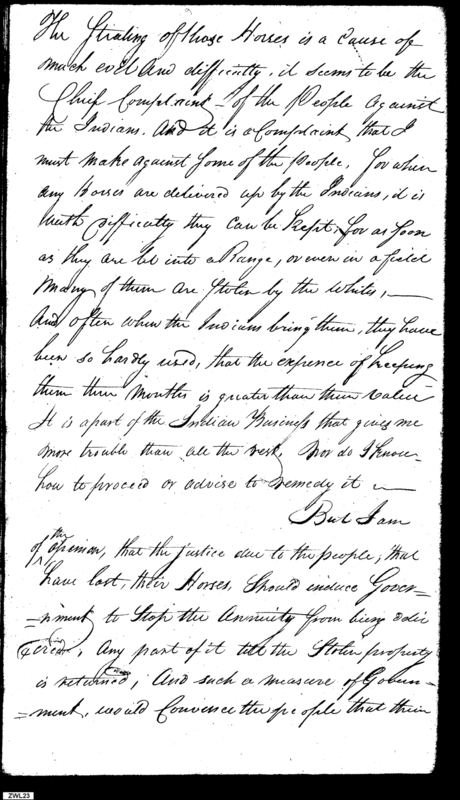 The Stealing of those Horses is a cause of
much evil And difficulty, it seems to be the
Chief Complaint of the People Against
the Indians. And it is a Complaint that I
must make against Some of the People, for when
any Horses are delivered up by the Indians, it is
with difficulty they can be Kept, for as Soon
as they are let into a Range, or even in a field
Many of them are Stolen by the Whites, —
And often when the Indians bring them, they have
been so hardly used, that the expence of keeping
them three Months is greater than their value
It is a part of the Indian Business that gives me
more trouble than all the rest, Nor do I know
how to proceed or advise to remedy it —
But I am
of the opinion, that the justice due to the people, that
have lost, their Horses, Should induce Gover-
-nment to Stop the Annuity from being deliv
ered, Any part of it till the Stolen property
is returned; And such a measure of Govern-
=ment, would Convence the people that their
ZWL23